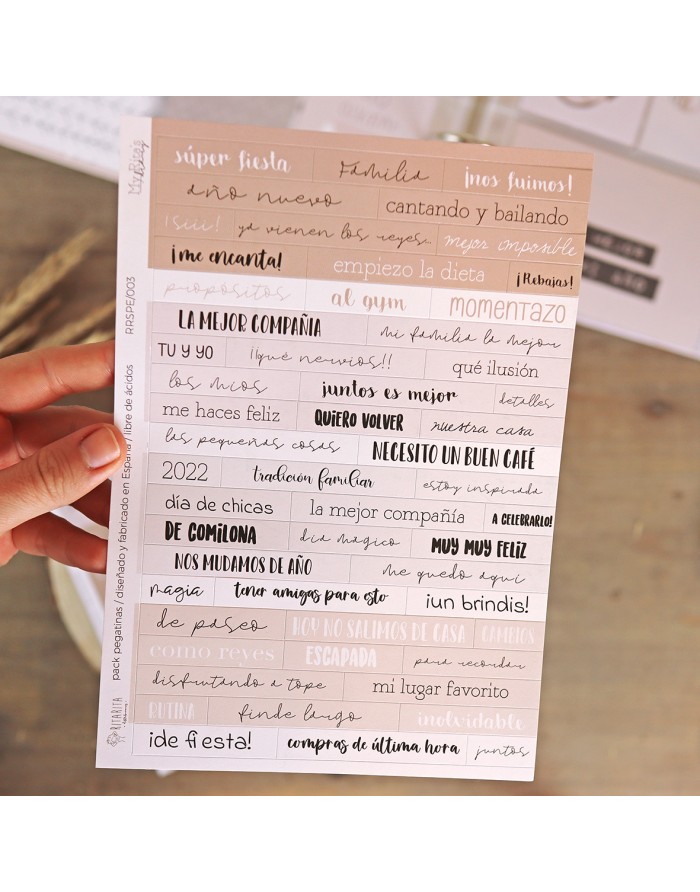 súper fiesta Familia ¡nos fuimos!
año nuevo cantando y bailando
¡siii! ya vienen los reyes... mejor imposible
¡me encanta! empiezo la dieta ¡Rebajas!
propósitos al gym momentazo
LA MEJOR COMPAÑIA mi familia la mejor
TU Y YO ¡¡qué nervios!! qué ilusión
los mios juntos es mejor detalles
me haces feliz QUIERO VOLVER nuestra casa
las pequeñas cosas NECESITO UN BUEN CAFÉ
2022 tradición familiar estoy inspirada
día de chicas la mejor compañía A CELEBRARLO!
DE COMILONA dia mágico MUY MUY FELIZ
NOS MUDAMOS DE AÑO me quedo aqui
magia tener amigas para esto ¡un brindis!
de paseo HOY NO SALIMOS DE CASA CAMBIOS
como reyes ESCAPADA para recordar
disfrutando a tope mi lugar favorito
RUTINA finde largo inolvidable
¡de fiesta! compras de última hora juntos
RRSPE/003
pack pegatinas / diseñado y fabricado en España / libre de ácidos
RITARITA